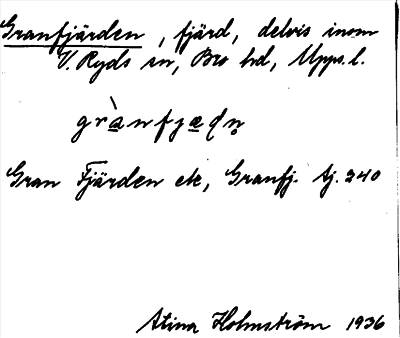 Granfjärden, fjärd, delvis inom
V. Ryds sn, Bro hd, Upps. l.
Gran Fjärden etc, Granfj. Aj. 240
Stina Holmström 1936